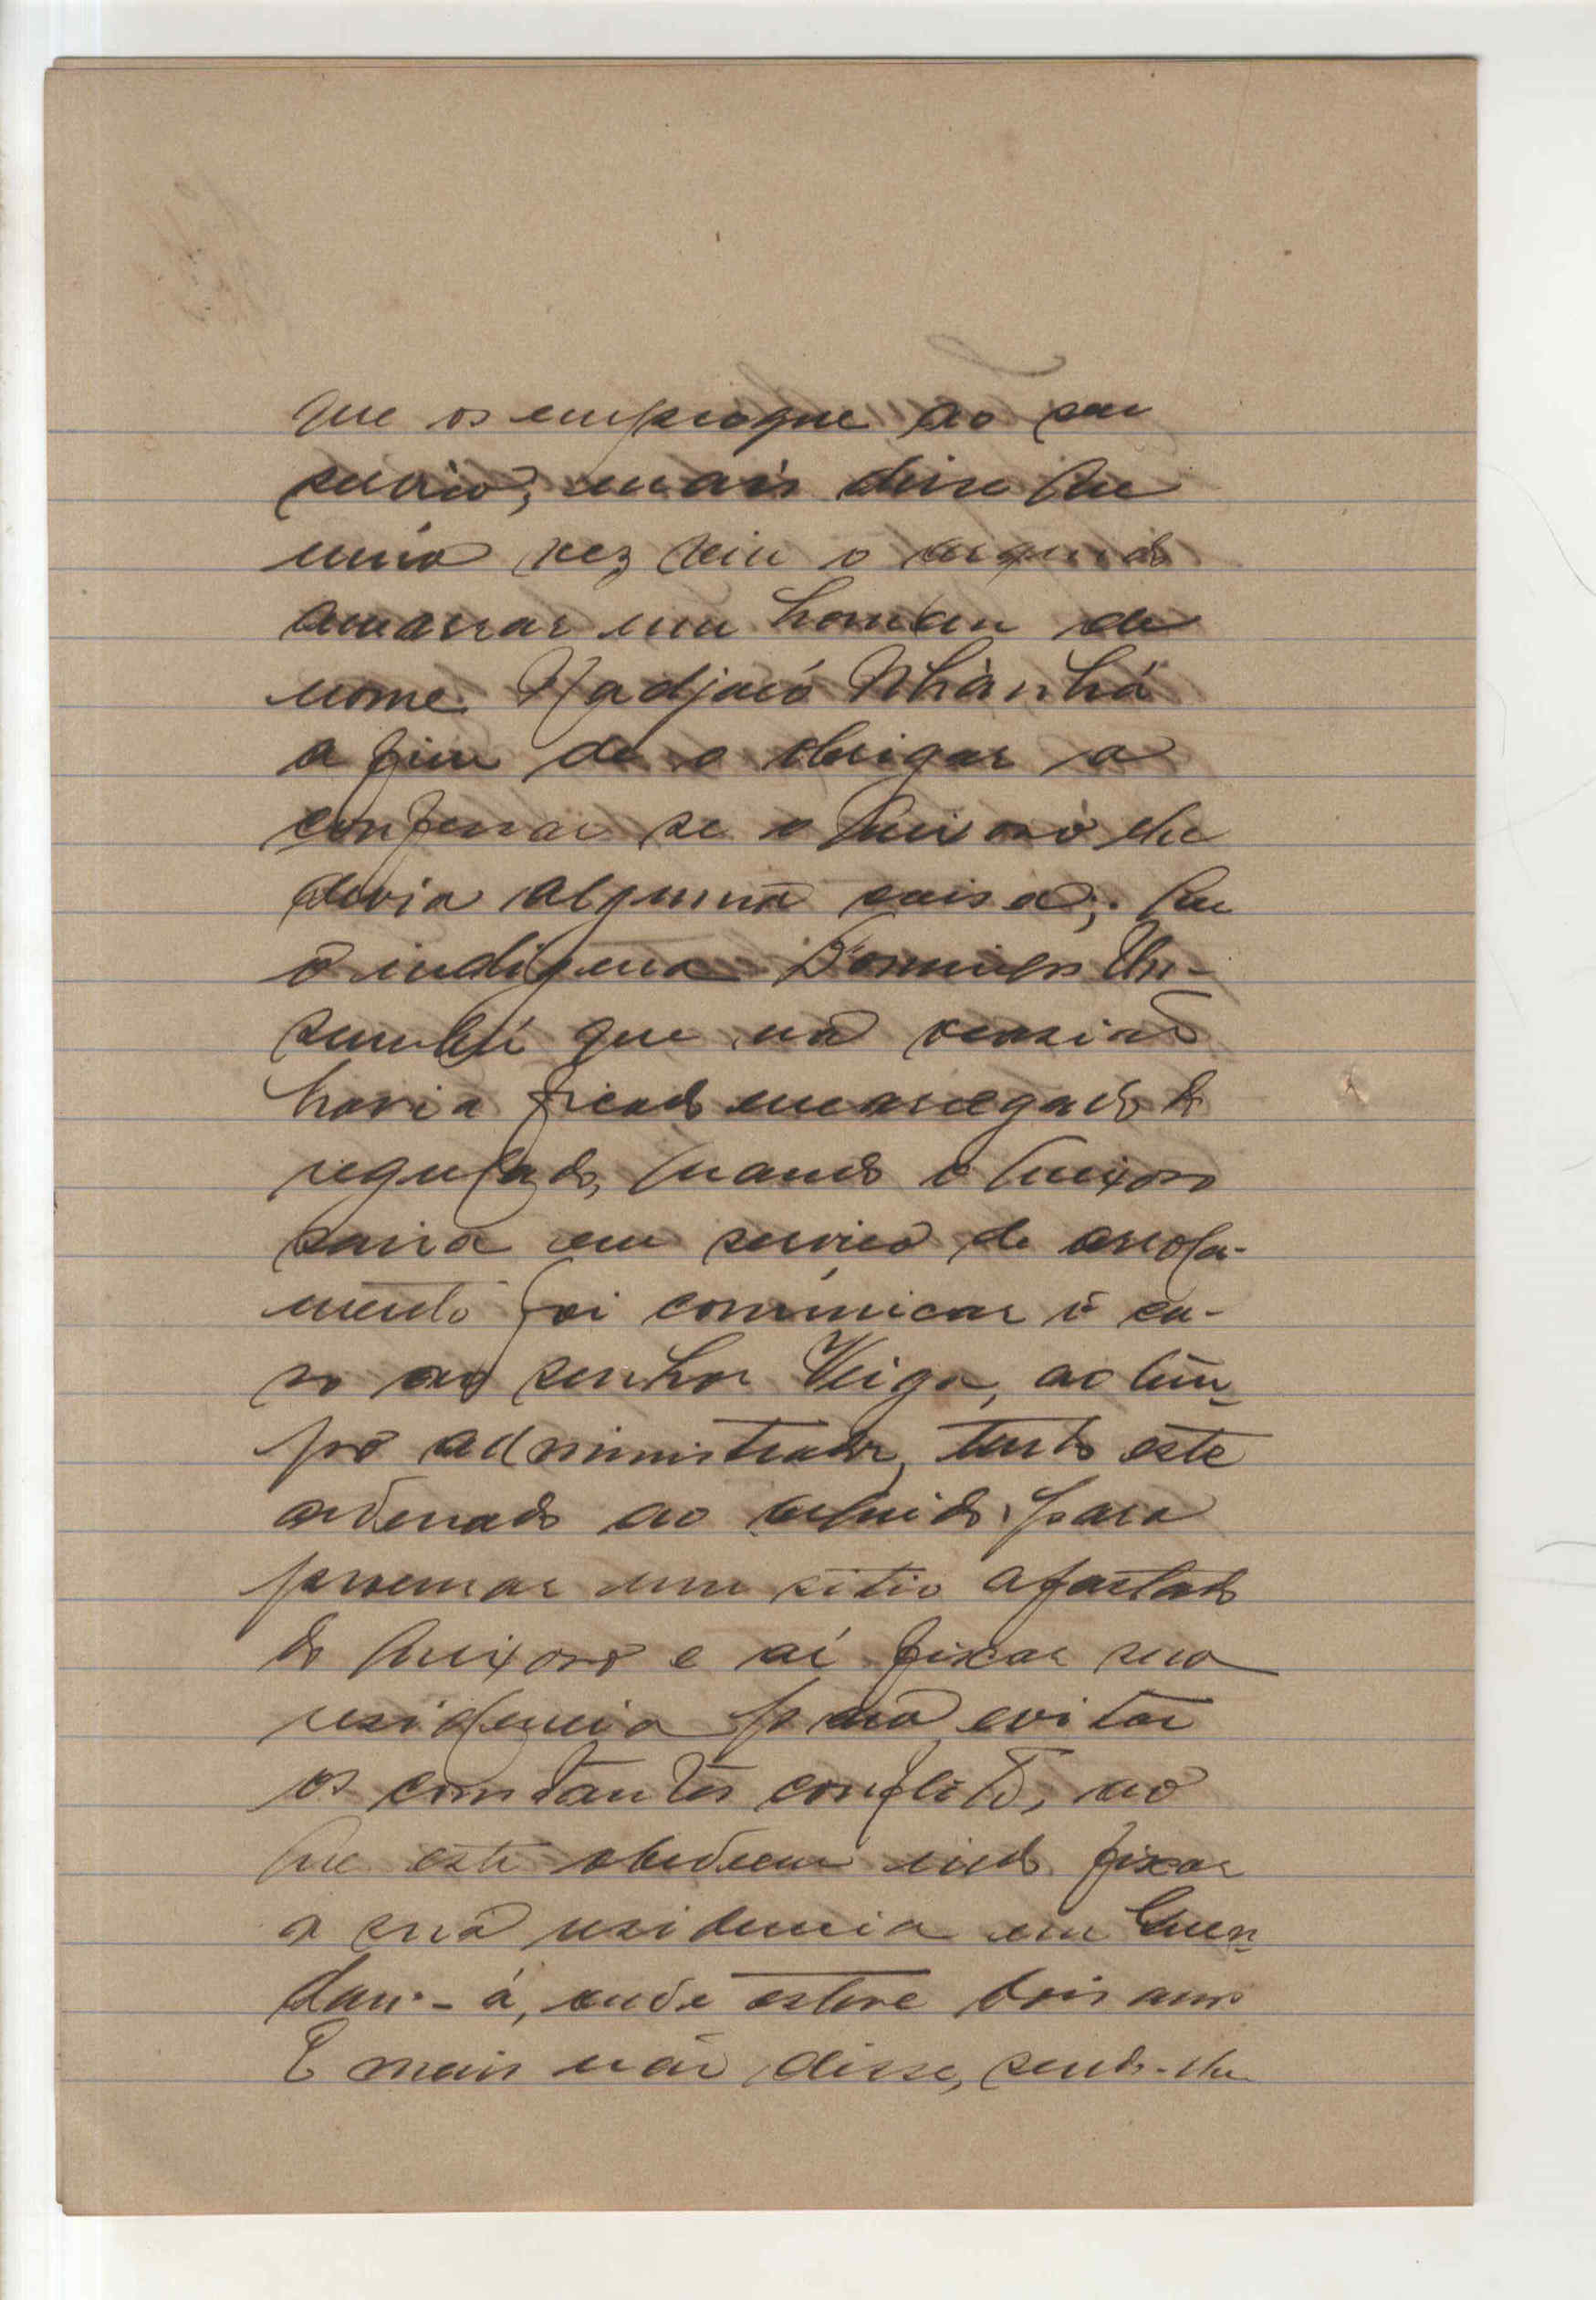 que os empregue ao seu
serviço; mais disse que
uma vez viu o arguido
amarrar um homem de
nome Nadjacó Nhànhá
a fim de o obrigar a
confessar se o queixoso lhe
devia alguma coisa; que
o indigena Domingos
que na ocasião
havia ficado encarregado do
regulado, quando o queixoso
saira em serviço de arrola-
mento foi comunicar o ca-
so ao senhor Veiga, ao tem-
po administrador, tendo este
ordenado ao arguido para
procurar um sitio afastado
do queixoso e aí fixar sua
residencia para evitar
os constantes conflitos, ao
que este obedeceu indo fixar
a sua residencia em
onde esteve dois anos
E mais não disse, sendo-lhe